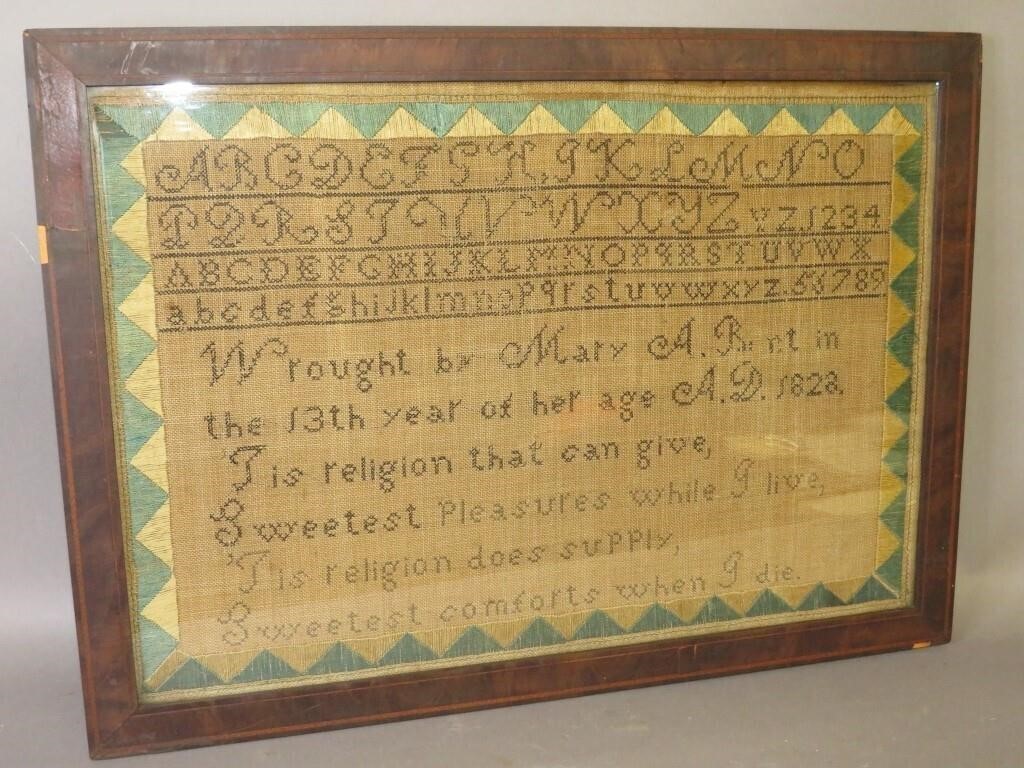 A B C D E F G H I J K L M N O
P Q R S T U V W X Y Z y z 1 2 3 4
A B C D E F G H I J K L M N O P q R S T U V W X
a b c d e f g h i j k l m n o p q r s t u v w x y z. 5 6 7 8 9
Wrought by Mary A. in
the 13th year of her age A.D. 1828.
'Tis religion that can give,
Sweetest Pleasures while I live,
'Tis religion does supply,
Sweetest comforts when I die.